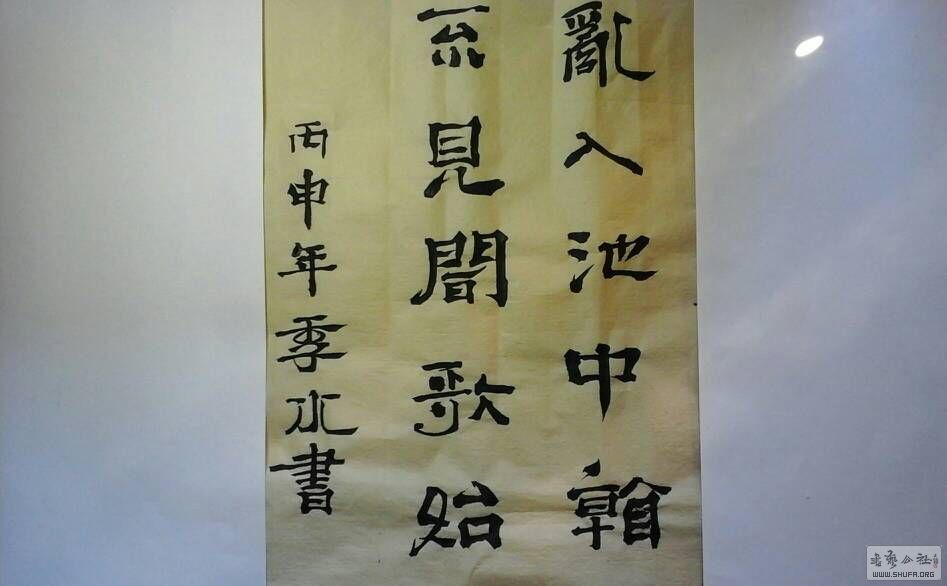 亂入池中看
不見聞歌始
丙申年季水書
书艺公社
WWW.SHUFA.ORG